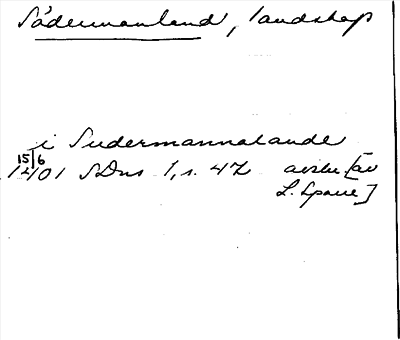 Södermanland, landskap
i Sudermannalande
15/6
1401 SDns 1, s. 47 avskr. [av
L. Sparre]